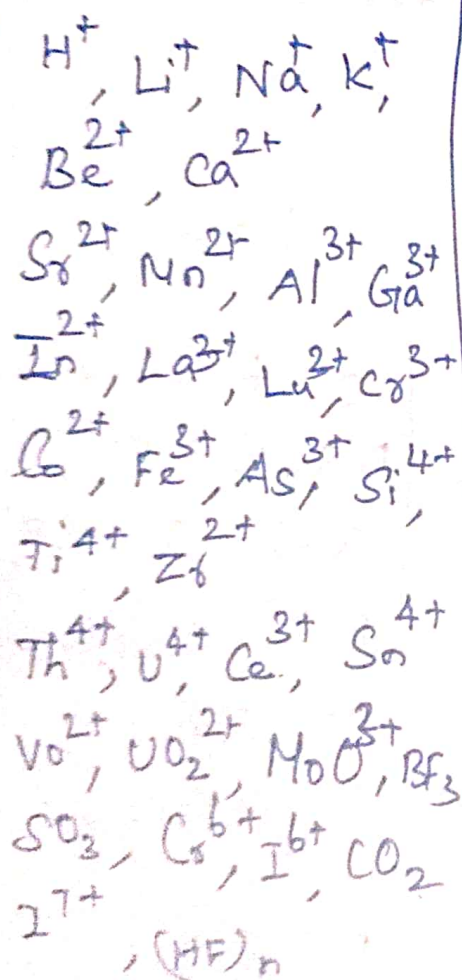 H⁺, Li⁺, Na⁺, K⁺,
Be²⁺, Ca²⁺
Sr²⁺, Mn²⁺, Al³⁺, Ga³⁺
In²⁺, La³⁺, Lu³⁺, Cr³⁺
Co²⁺, Fe³⁺, As³⁺, Si⁴⁺,
Ti⁴⁺, Zr²⁺
Th⁴⁺, U⁴⁺, Ce³⁺, Sn⁴⁺
VO²⁺, UO₂²⁺, MoO³⁺, BF₃
SO₃, Cr⁶⁺, I⁶⁺, CO₂
I⁷⁺, (HF)n